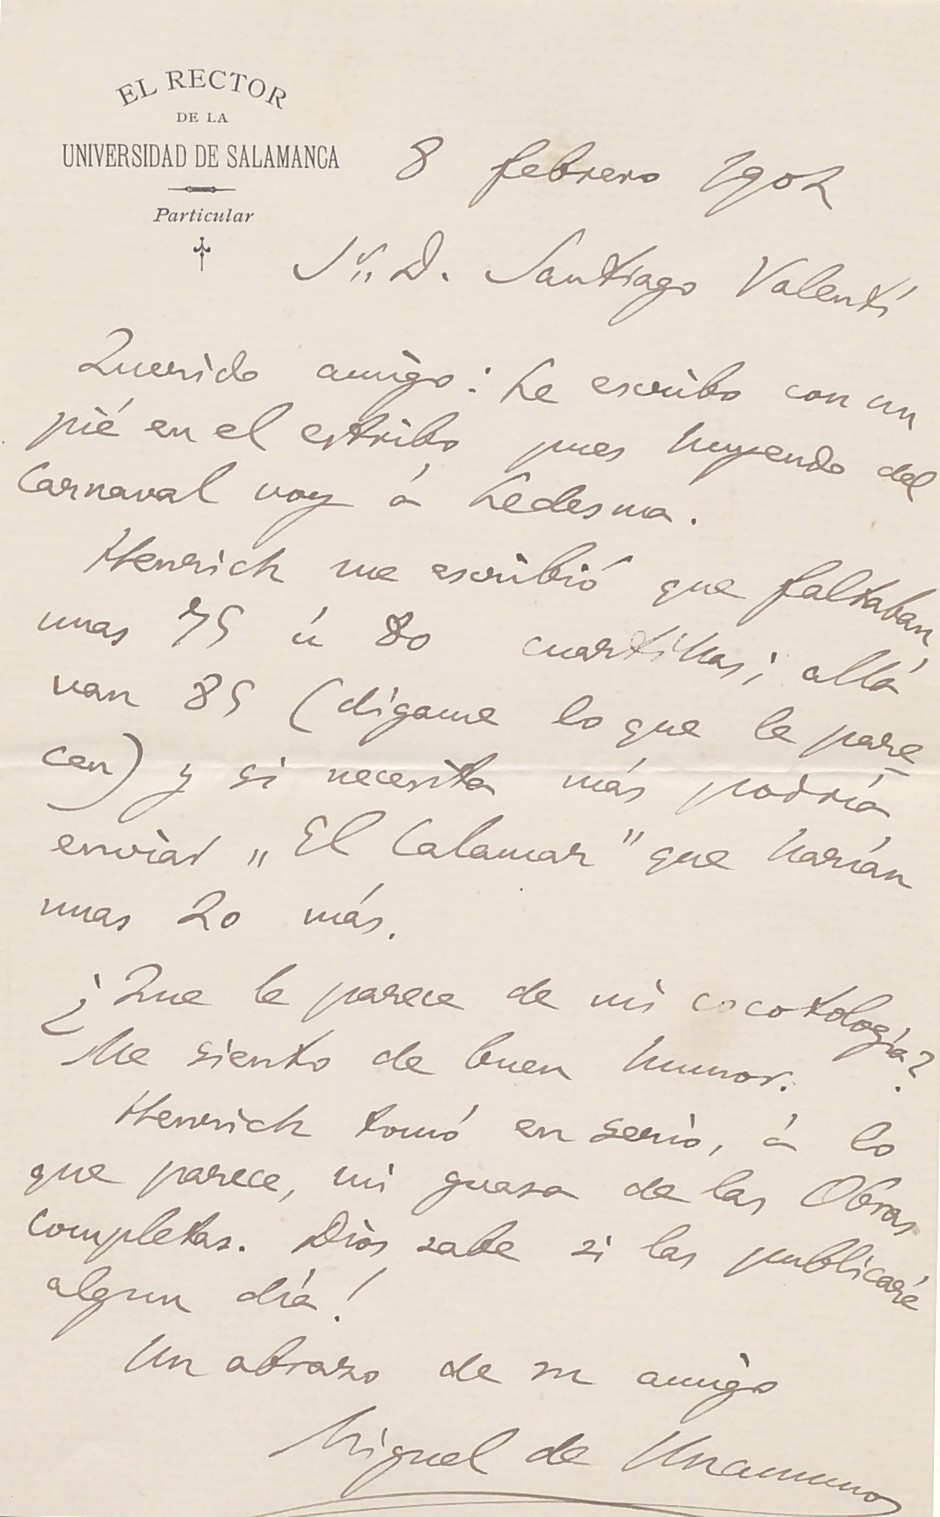 EL RECTOR
DE LA
UNIVERSIDAD DE SALAMANCA
Particular
8 febrero 1902
Sr. D. Santiago Valentí
Querido amigo: Le escribo con un
pié en el estribo pues huyendo del
Carnaval voy á Ledesma.
Henrich me escribió que faltaban
unas 75 ú 80 cuartillas; allá
van 85 (dígame lo que le pare
cen) y si necesita más podría
enviar „El Calamar" que harían
unas 20 más.
¿Que le parece de mi cocotología?
Me siento de buen humor.
Henrich tomó en serio, á lo
que parece, mi guasa de las Obras
completas. Dios sabe si las publicaré
algun día!
Un abrazo de su amigo
Miguel de Unamuno